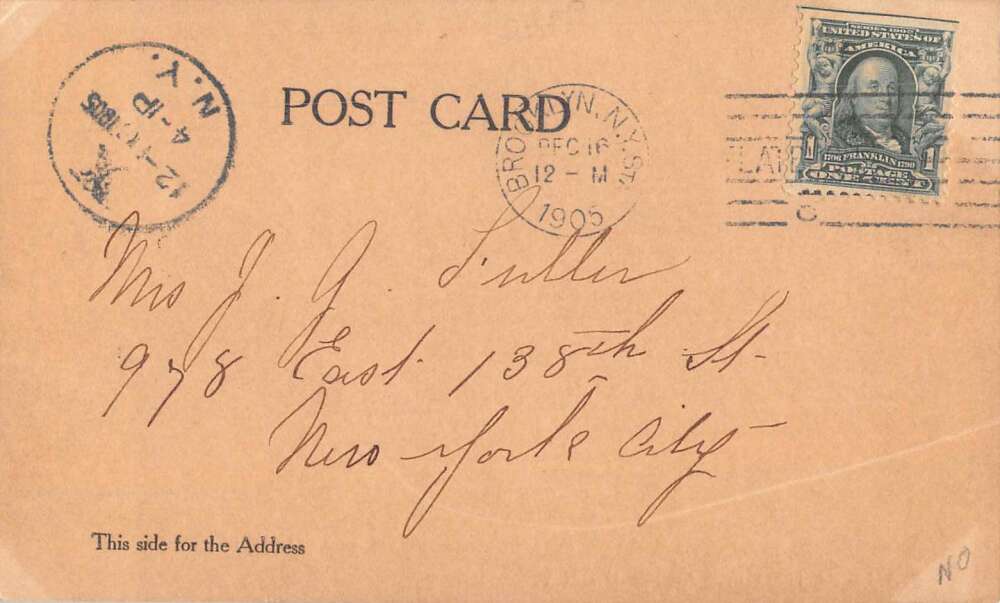 POST CARD
N.Y.
4-1P
BROOKLYN, N.Y. STA.
DEC 16
12 - M
1905
SERIES 1902
UNITED STATES OF
AMERICA
1706 FRANKLIN 1790
POSTAGE
ONE CENT
Mrs J. A. Fuller
978 East 138th St.
New York City
This side for the Address
NO